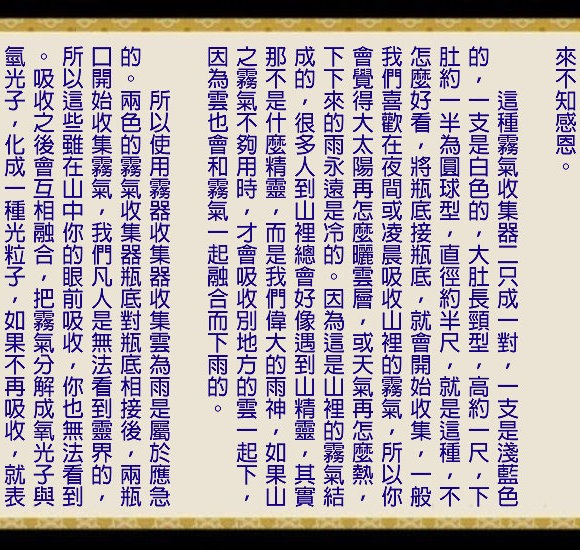 來不知感恩。
這種霧氣收集器二只成一對，一支是淺藍色
的，一支是白色的，大肚長頸型，高約一尺，下
肚約一半為圓球型，直徑約半尺，就是這種，不
怎麼好看，將瓶底接瓶底，就會開始收集，一般
我們喜歡在夜間或凌晨吸收山裡的霧氣，所以你
會覺得大太陽再怎麼曬雲層，或天氣再怎麼熱，
下下來的雨永遠是冷的。因為這是山裡的霧氣結
成的，很多人到山裡總會好像遇到山精靈，其實
那不是什麼精靈，而是我們偉大的雨神，如果山
之霧氣不夠用時，才會吸收別地方的雲一起下，
因為雲也會和霧氣一起融合而下雨的。
所以使用霧器收集器收集雲為雨是屬於應急
的。兩色的霧氣收集器瓶底對瓶底相接後，兩瓶
口開始收集霧氣，我們凡人是無法看到靈界的，
所以這些雖在山中你的眼前吸收，你也無法看到
。吸收之後會互相融合，把霧氣分解成氧光子與
氫光子，化成一種光粒子，如果不再吸收，就表